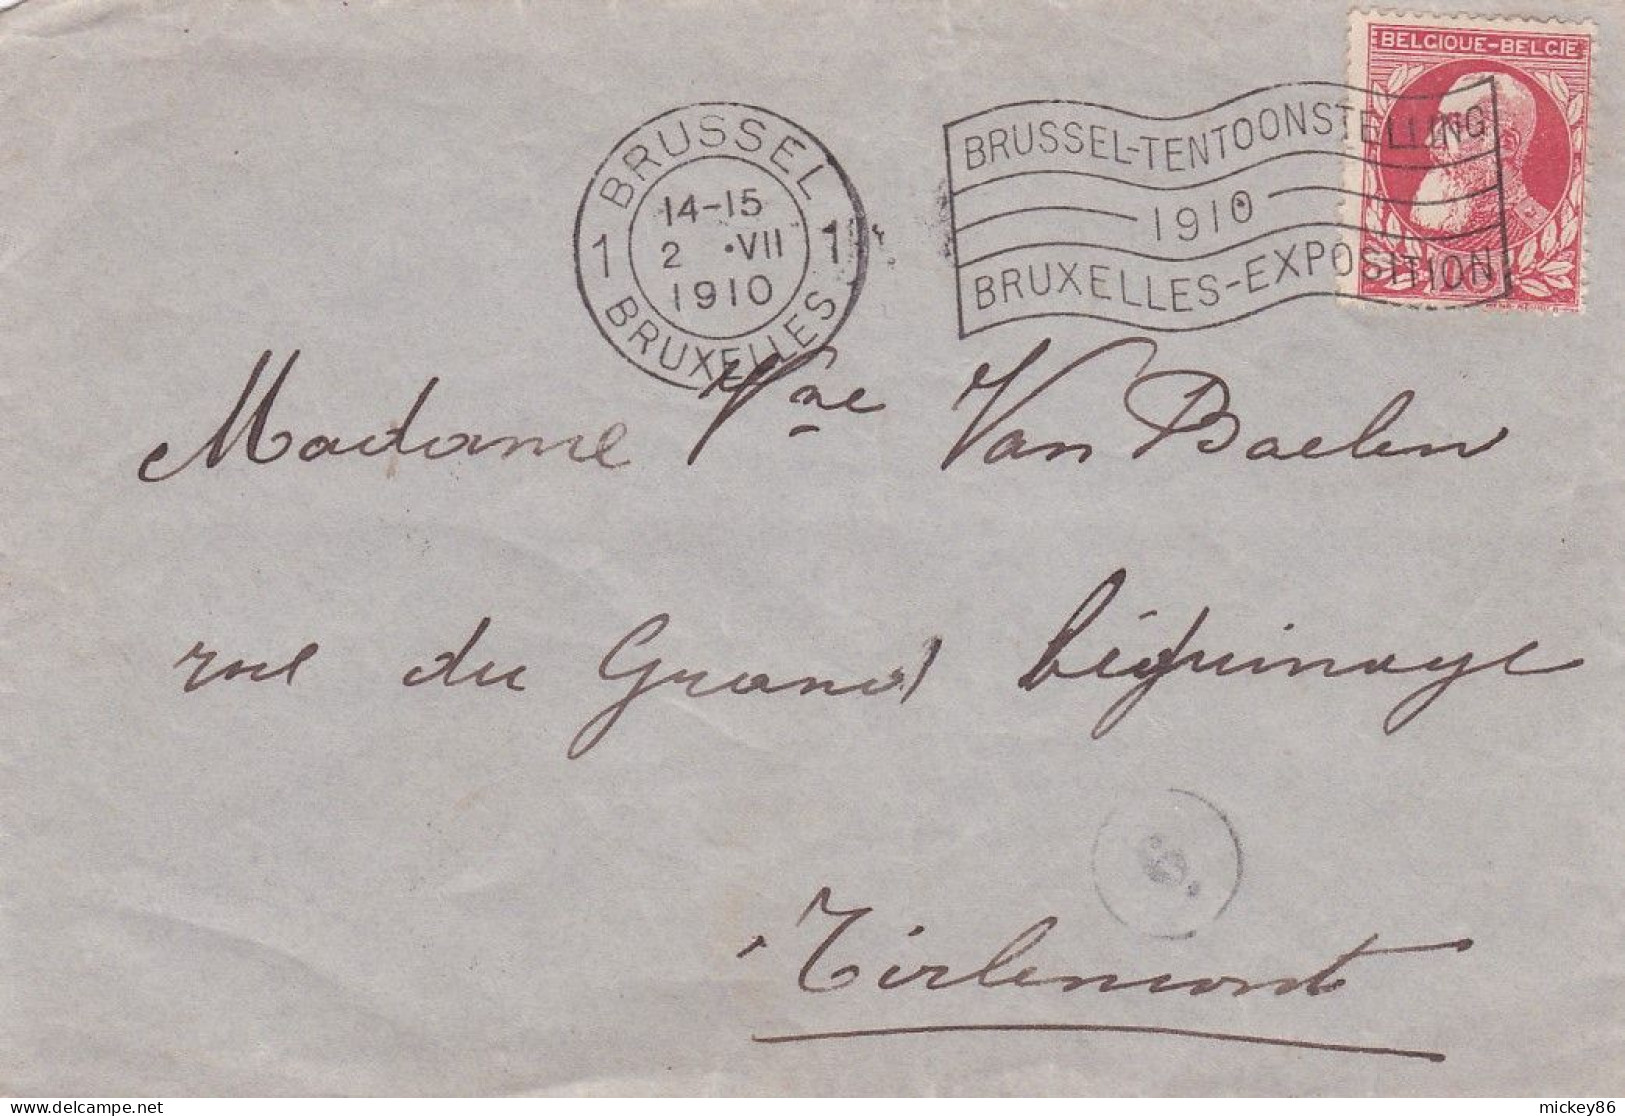 BELGIQUE-BELGIE
BRUSSEL
14-15
1 2 •VII 1
1910
BRUXELLES
BRUSSEL-TENTOONSTELLING
1910
BRUXELLES-EXPOSITION
Madame Vve Van Baelen
rue du Grand béguinage
6.
Tirlemont
mickey86